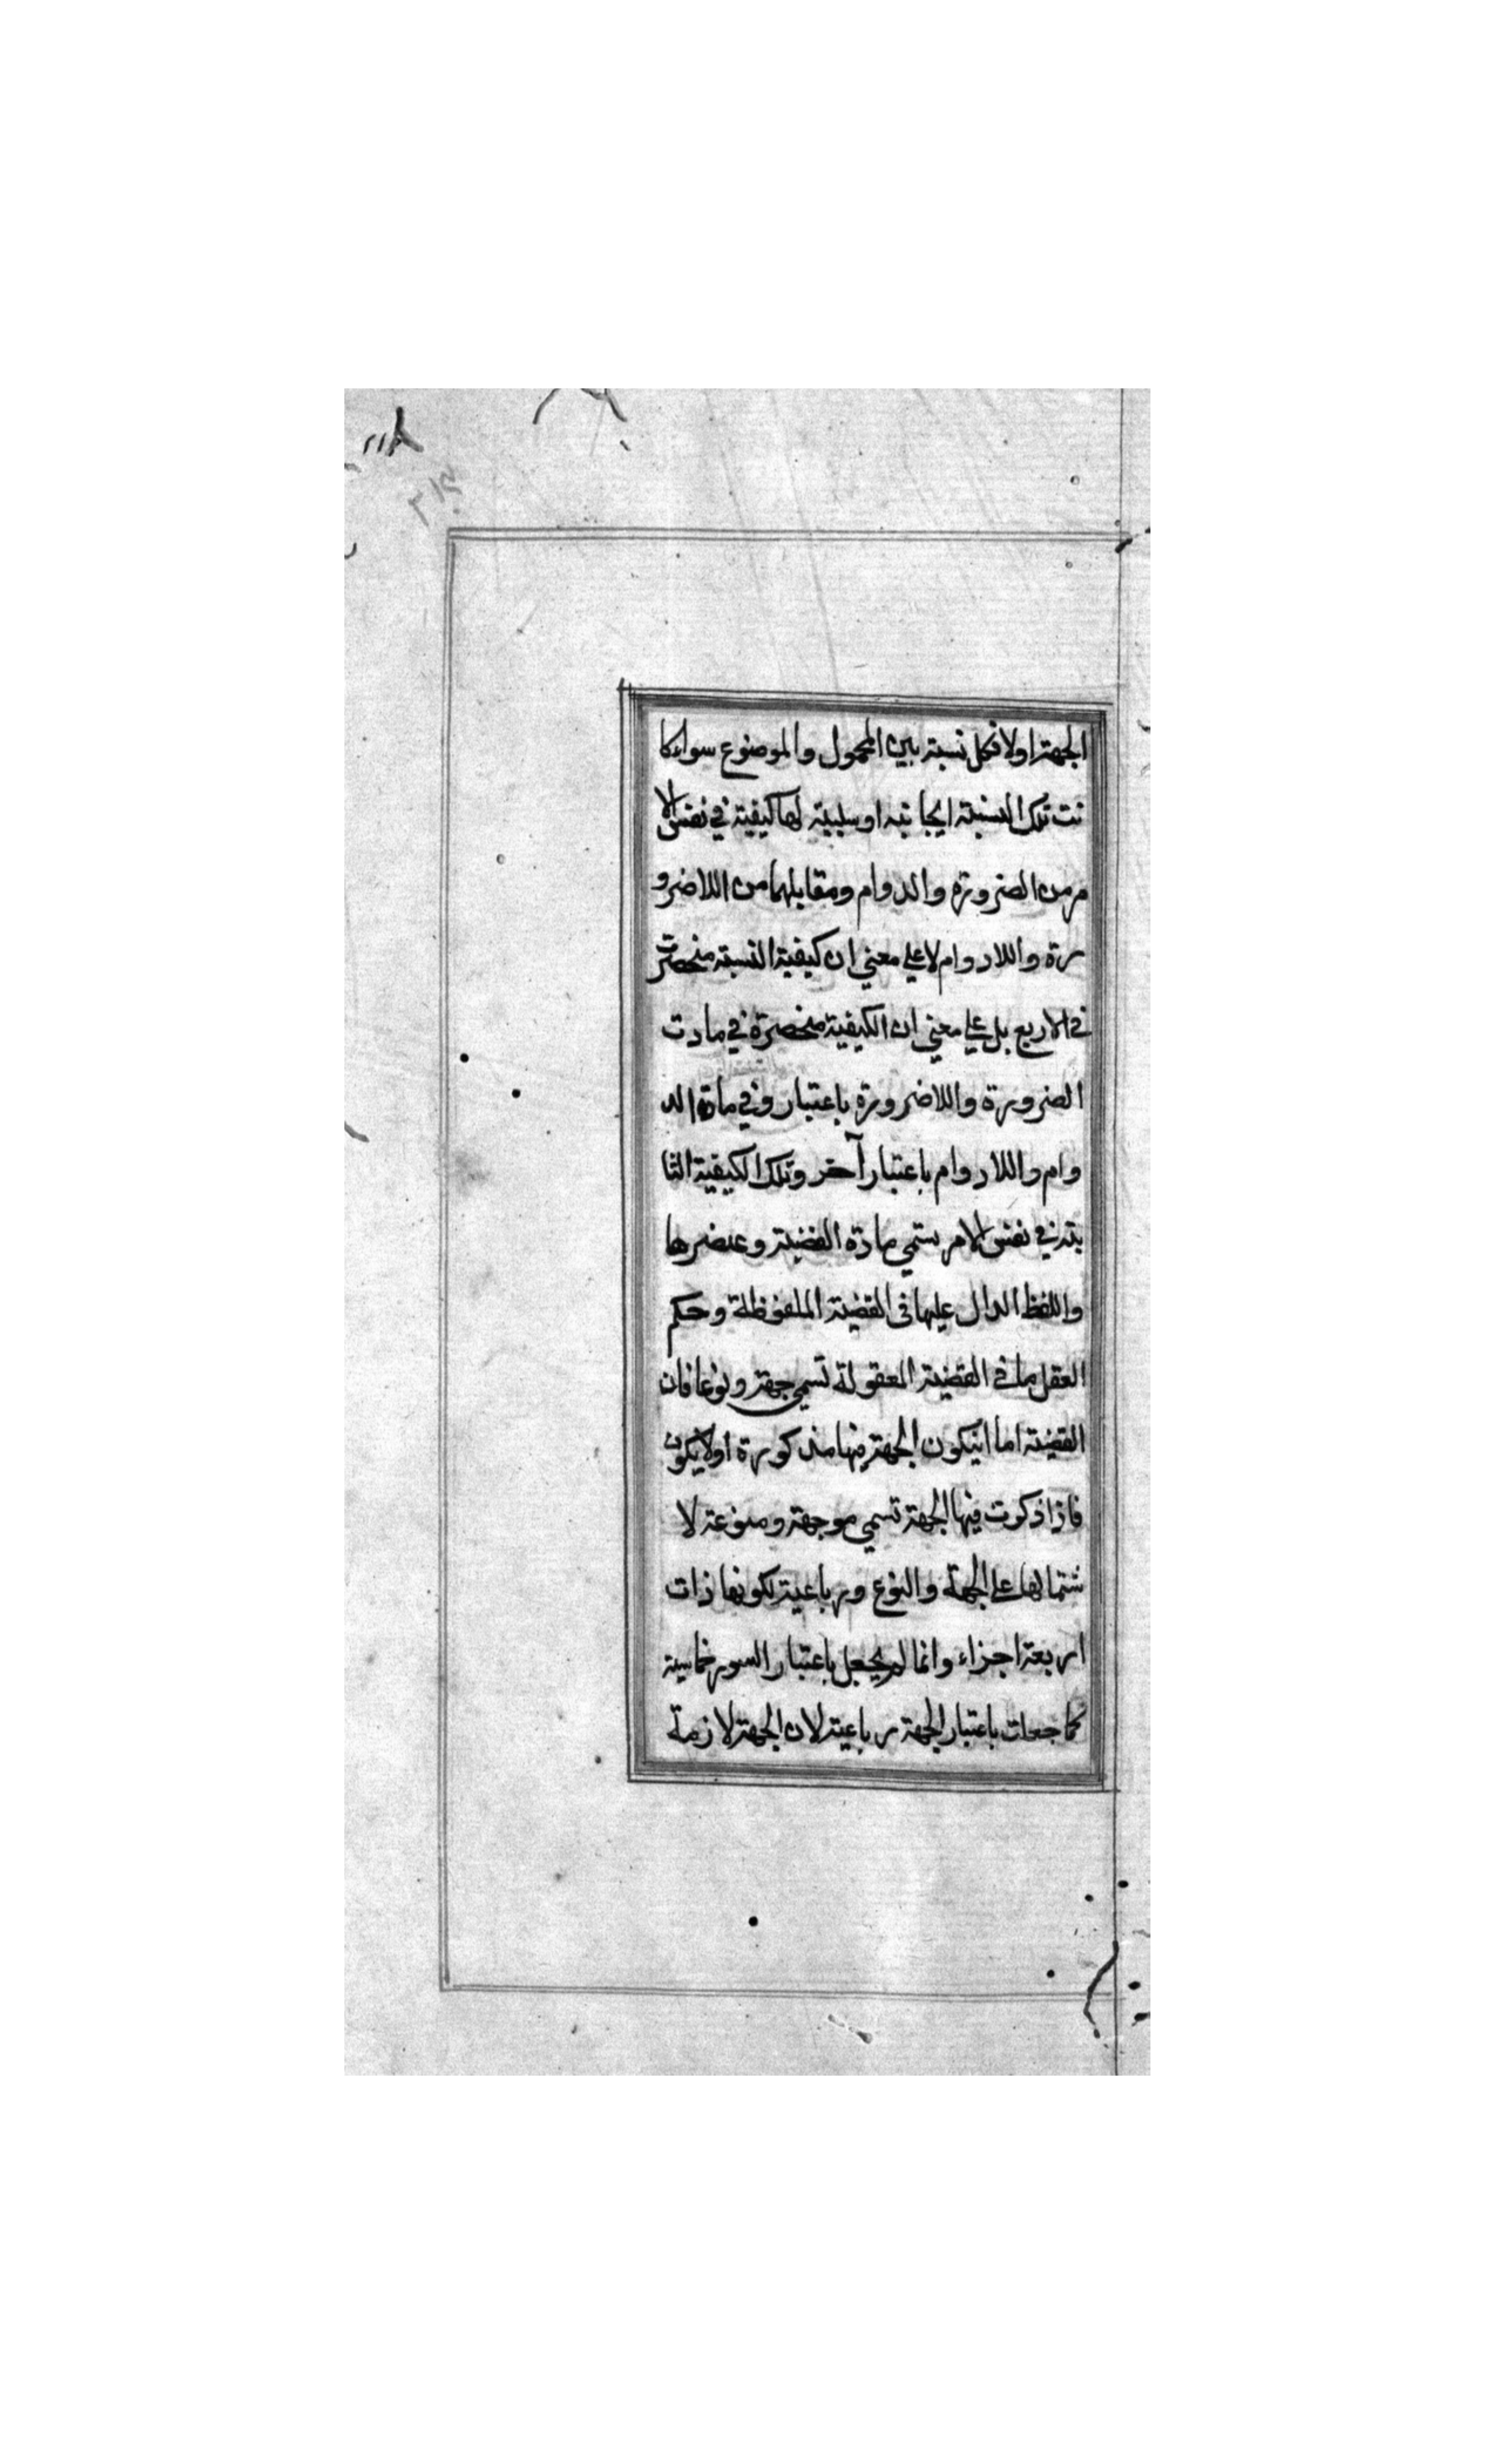 الجهة اولا فكل نسبة بين المحمول والموضوع سواء كا
نت تلك النسبة ايجابية او سلبية لها كيفية في نفس الا
مر من الضرورة والدوام ومقابلهما من اللاضرو
رة واللادوام لا على معني ان كيفية النسبة منحصرة
في الاربع بل على معني ان الكيفية منحصرة في مادت
الضرورة واللاضرورة باعتبار وفي مادة الد
وام واللادوام باعتبار آخر وتلك الكيفية الثا
بتة في نفس الامر يسمي مادة القضية وعنصرها
واللفظ الدال عليها في القضية الملفوظة وحكم
العقل بها في القضية المعقولة تسمي جهة ونوعا فان
القضية اما انيكون الجهة فيها مذكورة اولا يكون
فاذا ذكرت فيها الجهة تسمي موجهة ومنوعة لا
شتمالها على الجهة والنوع ورباعية لكونها ذات
اربعة اجزاء وانما لم يجعل باعتبار السور خماسية
كما جعلت باعتبار الجهة رباعية لان الجهة لازمة